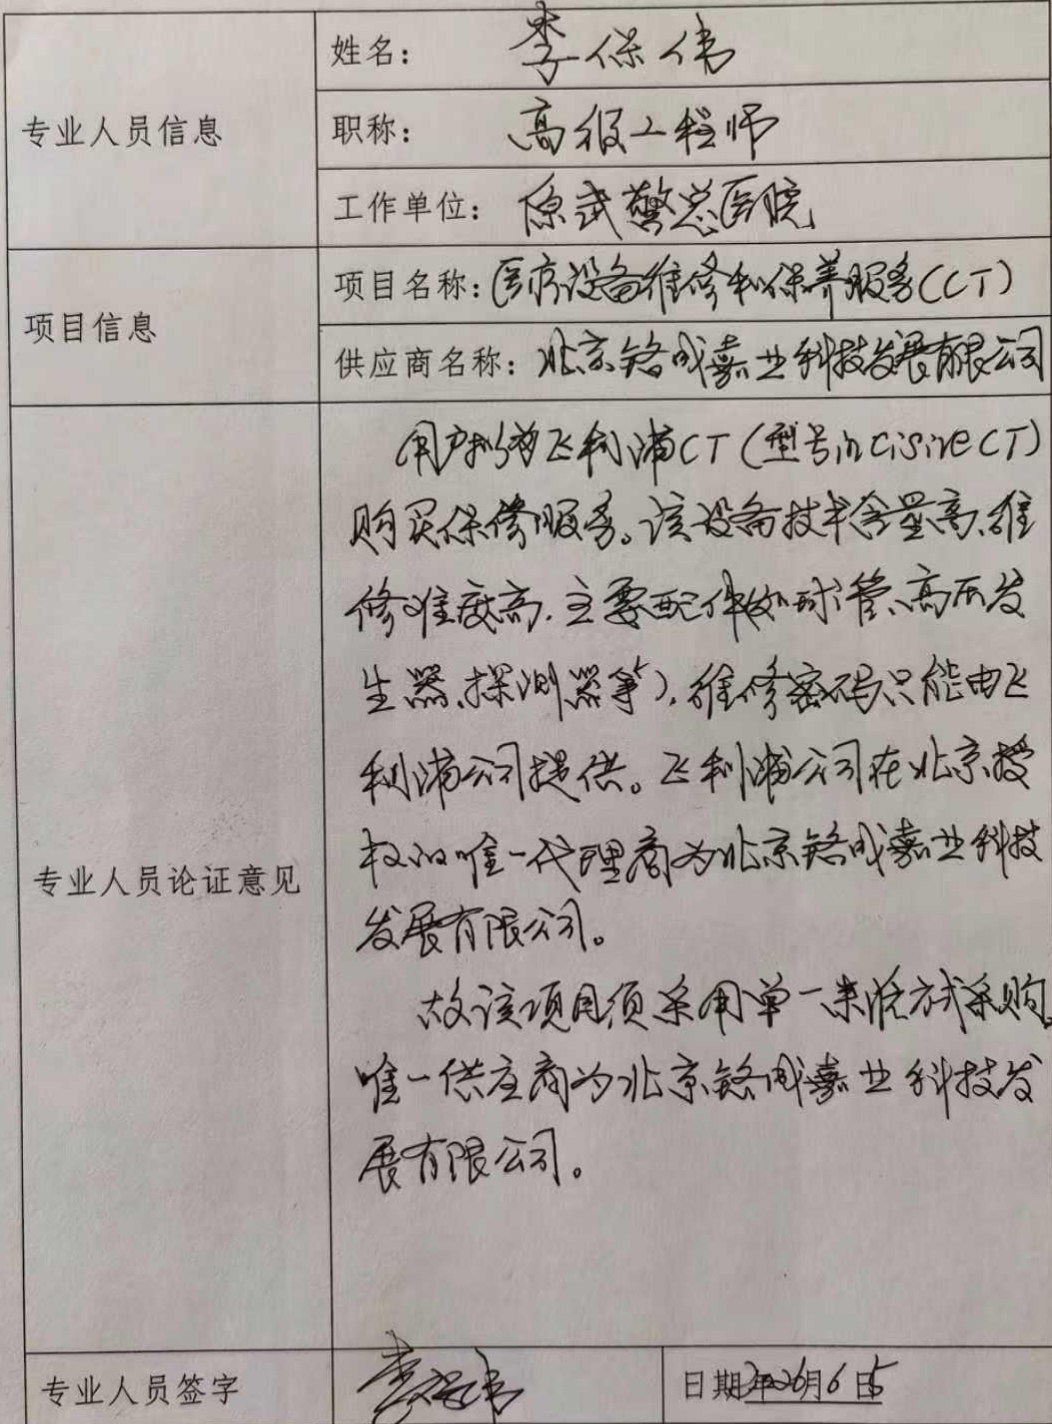 专业人员信息
姓名：李保伟
职称：高级工程师
工作单位：原武警总医院
项目信息
项目名称：医疗设备维修和保养服务（CT）
供应商名称：北京铭成嘉业科技发展有限公司
专业人员论证意见
用户拟为飞利浦CT（型号incisive CT）
购买保修服务。该设备技术含量高、维
修难度高．主要配件（如球管、高压发
生器、探测器等），维修密码只能由飞
利浦公司提供。飞利浦公司在北京授
权的唯一代理商为北京铭成嘉业科技
发展有限公司。
故该项目须采用单一来源方式采购，
唯一供应商为北京铭成嘉业科技发
展有限公司。
专业人员签字
李保伟
日期 年 月 日